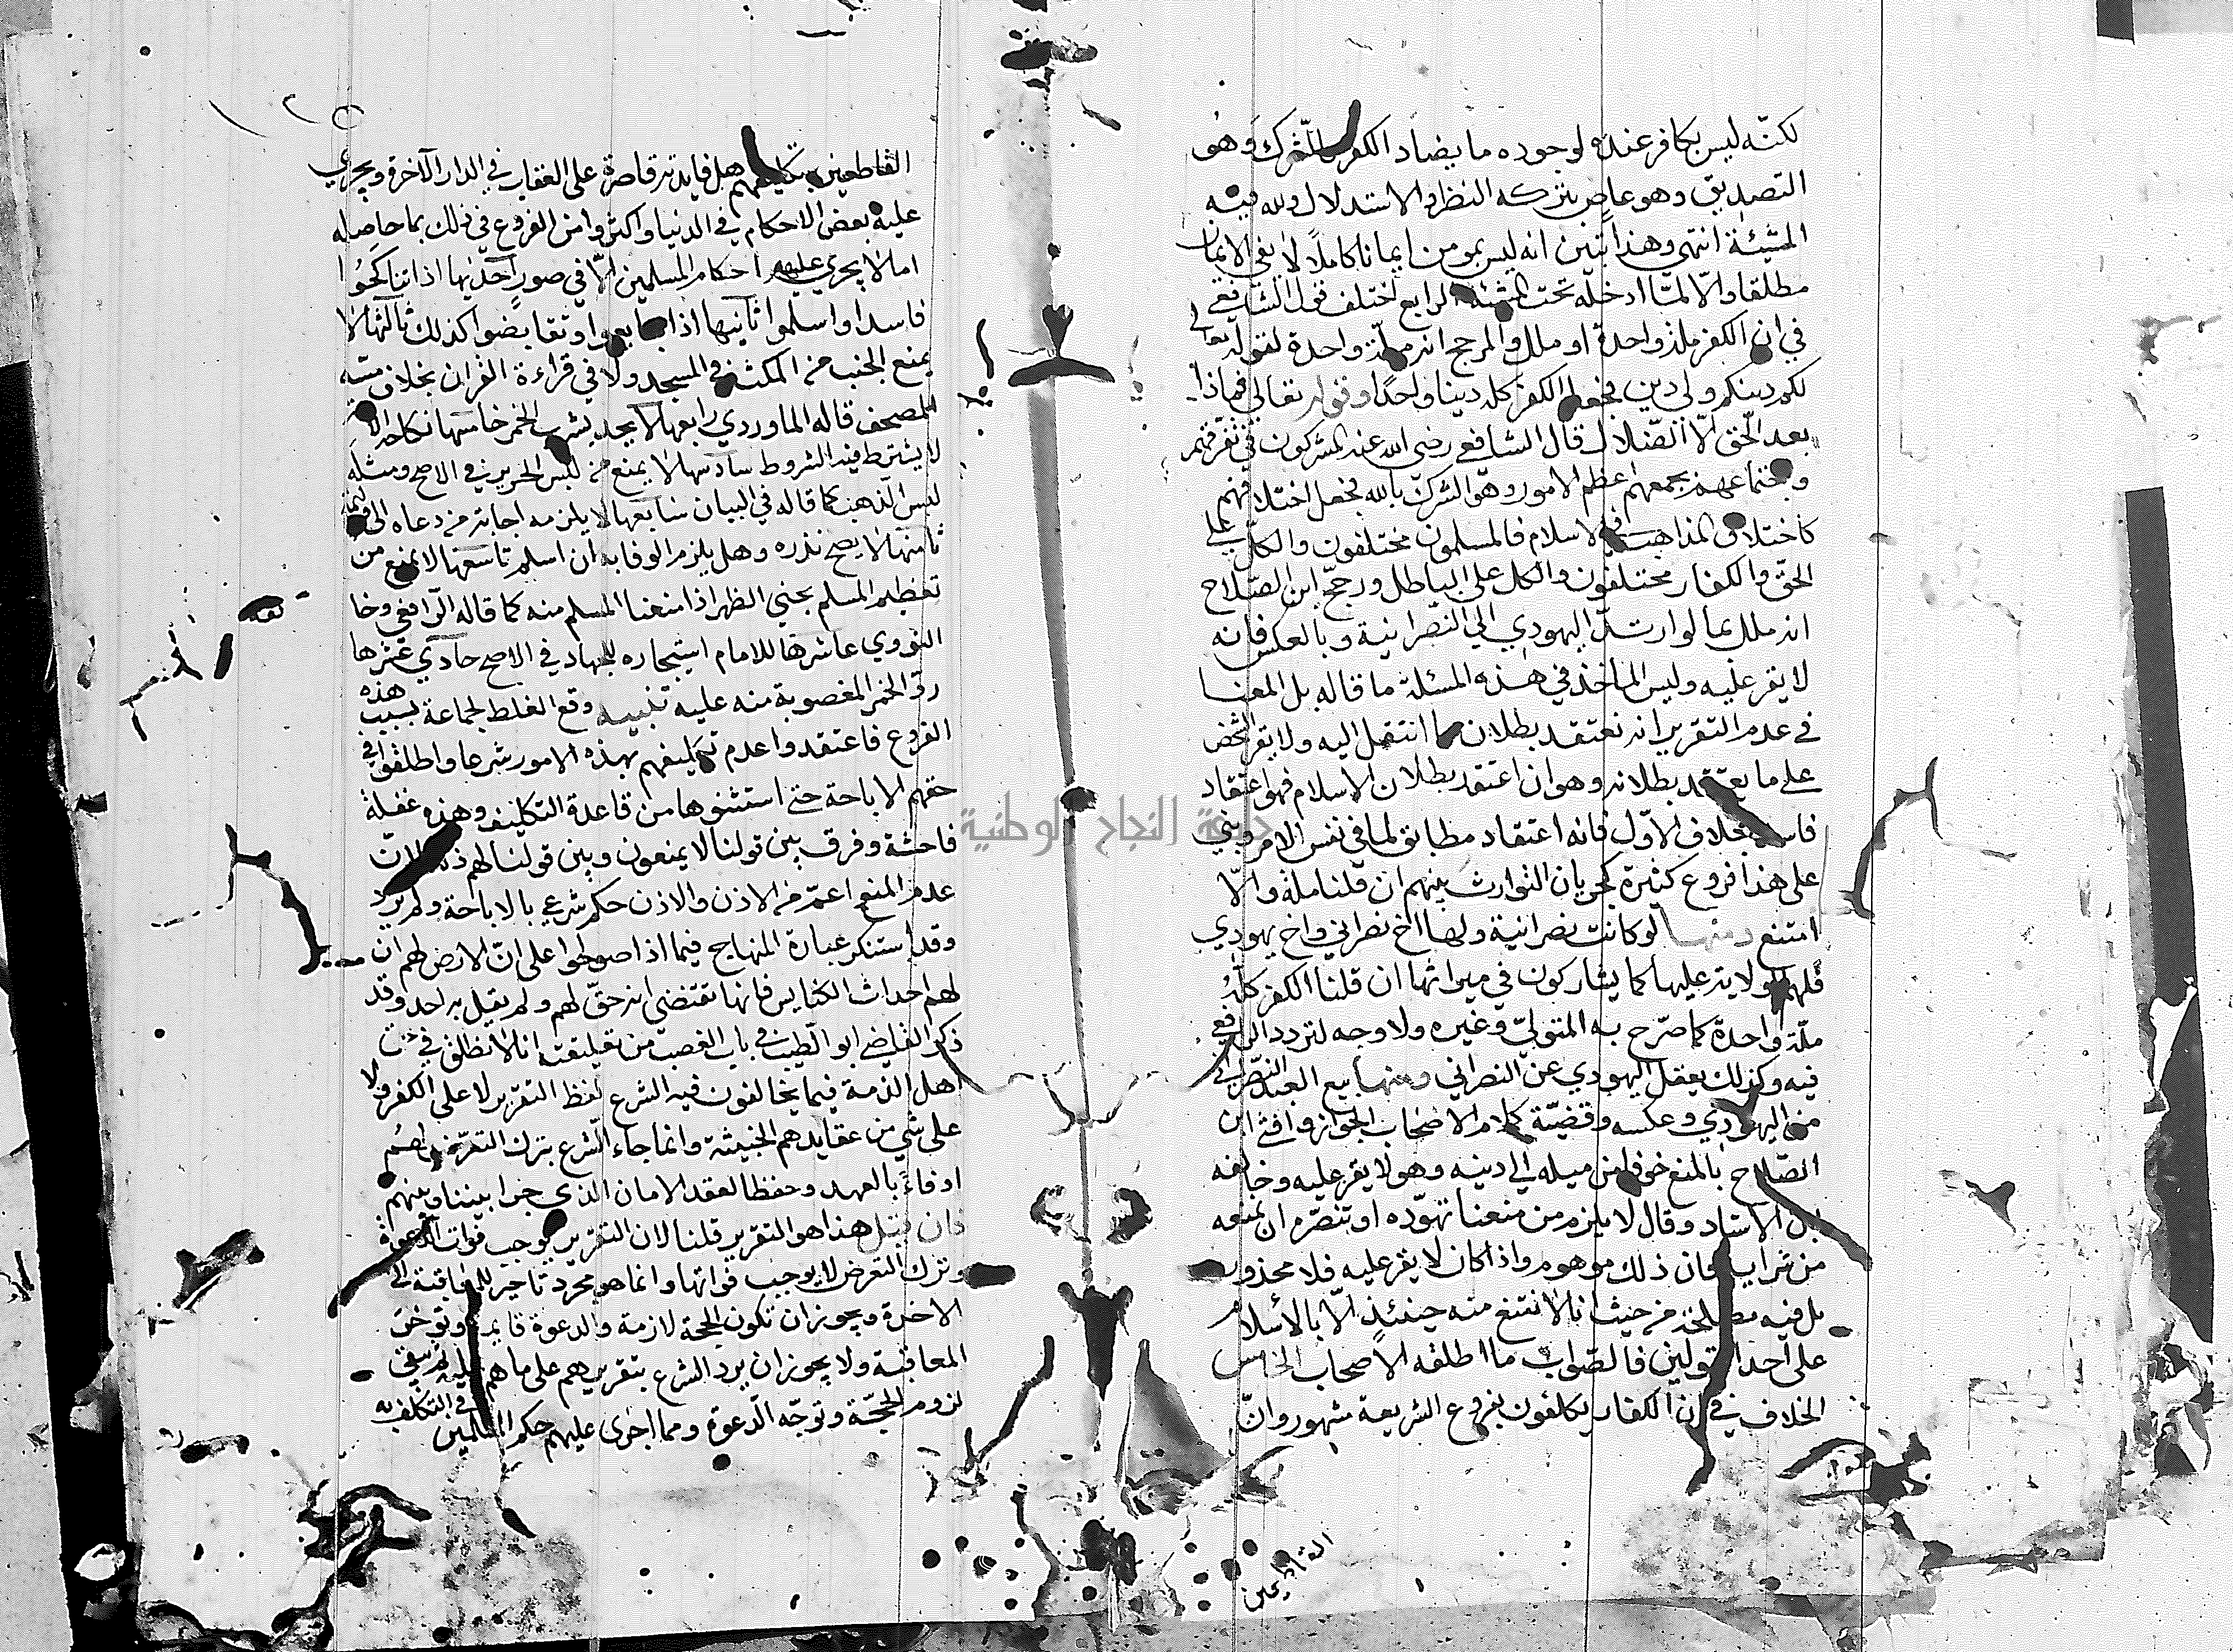 لكنّه ليس بكافر عنده لوجوده ما يضاد الكفر الشرك وهو
التصديق وهو عاص بتركه النظر والاستدلال ولله فيه
المشيئة انتهى وهذا تبين انه ليس بمومن ايمانا كاملاً لا نفى الايمان
مطلقا والّا لمّا ادخله تحت المشيئة الرابع اختلف قول الشافعي
في ان الكفر ملة واحدة او ملل والمرجح انه ملّة واحدة لقوله تعالى
لكم دينكم ولي دين فجعل الكفر كله دينا واحدًا وقوله تعالى فماذا
بعد الحق الّا الضّلال قال الشافعي رضي الله عنه المشركون في تفرقهم
واجتماعهم يجمعهم اعظم الامور وهو الشرك بالله فجعل اختلافهم
كاختلاف المذاهب في الاسلام فالمسلمون مختلفون والكل على
الحقّ والكفار مختلفون والكل على الباطل ورجّح ابن الصّلاح
انه ملل بما لو ارتدّ اليهودي الى النّصرانية وبالعكس فانه
لا يقر عليه وليس الماخذ في هذه المسئلة ما قاله بل المعنا
في عدم التقرير انه نعتقد بطلان ما انتقل اليه ولا يقر الشخص
على ما يعتقد بطلانه وهو ان اعتقد بطلان الاسلام فهو اعتقاد
فاسد بخلاف الاوّل فانه اعتقاد مطابق لما في نفس الامر
على هذا فروع كثيرة كجريان التوارث بينهم ان قلنا ملة والّا
امتنع ومنها لو كانت نصرانية ولها اخ نصراني واخ يهودي
فلهما الولاية عليها كما يشاركون في ميراثها ان قلنا الكفر كلّه
ملّة واحدة كما صرّح به المتولي وغيره ولا وجه لتردد الرافعي
فيه وكذلك يعقل اليهودي عن النصراني ومنها بيع العبد النصراني
من اليهودي وعكسه وقضيّة كلام الاصحاب الجواز وافتى ابن
الصّلاح بالمنع خوفا من ميله الى دينه وهو لا يقر عليه وخالفه
ابن الاستاد وقال لا يلزم من منعنا تهوّده او تنصّره ان نمنعه
من شراب فان ذلك موهوم واذا كان لا يقر عليه فلا محذور
بل فيه مصلحة من حيث انا لا نقنع منه حينئذ الّا بالاسلام
على احد القولين فالصّواب ما اطلقه الاصحاب الخامس
الخلاف في ان الكفار يكلفون بفروع الشريعة مشهور وانّ
القاطعين
القاطعين بتكليفهم هل فايدته قاصرة على العقاب في الدار الآخرة ويجري
عليه بعض الاحكام في الدنيا واكثروا من الفروع في ذلك بما حاصله
اما لا يجري عليهم احكام المسلمين الّا في صور احديها اذا تناكحوا
فاسدا واسلموا ثانيها اذا تبايعوا وتقابضوا كذلك ثالثها لا
يمنع الجنب من المكث في المسجد ولا في قراءة القران بخلاف مسّه
المصحف قاله الماوردي رابعها لا يحد بشرب الخمر خامسها نكاحه
لا يشترط فيه الشروط سادسها لا يمنع من لبس الحرير في الاصح ومثله
لبس الذهب كما قاله في البيان سابعها لا يلزمه اجابة من دعاه الى وليمة
ثامنها لا يصح نذره وهل يلزم الوفا به ان اسلم تاسعها لا يمنع من
تعظيم المسلم بحني الظهر اذا منعنا المسلم منه كما قاله الرافعي وخا
النووي عاشرها للامام استيجاره للجهاد في الاصح حادي عشرها
ردّ الخمر المغصوبة منه عليه تنبيه وقع الغلط لجماعة بسبب هذه
الفروع فاعتقدوا عدم تكليفهم بهذه الامور شرعا واطلقوا في
حقهم الاباحة حتى استثنوها من قاعدة التكليف وهذه غفلة
فاحشة وفرق بين قولنا لا يمنعون وبين قولنا لهم ذلك لان
عدم المنع اعمّ من الاذن والاذن حكم شرعي بالاباحة ولم يرد
وقد استنكر عبارة المنهاج فيما اذا صولحوا على انّ الارض لهم ان
لهم احداث الكنايس فانها تقتضي انه حقّ لهم ولم يقل به احد وقد
ذكر القاضي ابو الطيب في باب الغصب من تعليقته انا لا نطلق في حق
اهل الذمة فيما يخالفون فيه الشرع لفظ التقرير لا على الكفر ولا
على شي من عقايدهم الخبيثة وانما جاء الشرع بترك التعرّض لهم
ادفاءً بالعهد وحفظا لعقد الامان الذي جرا بيننا وبينهم
فان قيل هذا هو التقرير قلنا لان التقرير يوجب فوات الدعوة
وترك التعرض لا يوجب فواتها وانما هو مجرد تاخير للمعاقبة الى
الاخرة ويجوز ان تكون الحجة لازمة والدعوة قايمة وتوخر
المعاقبة ولا يجوز ان يرد الشرع بتقريرهم على ما هم عليه
لزوم الحجّة وتوجّه الدعوة ومما اجرى عليهم حكم المسلمين في التكلف به